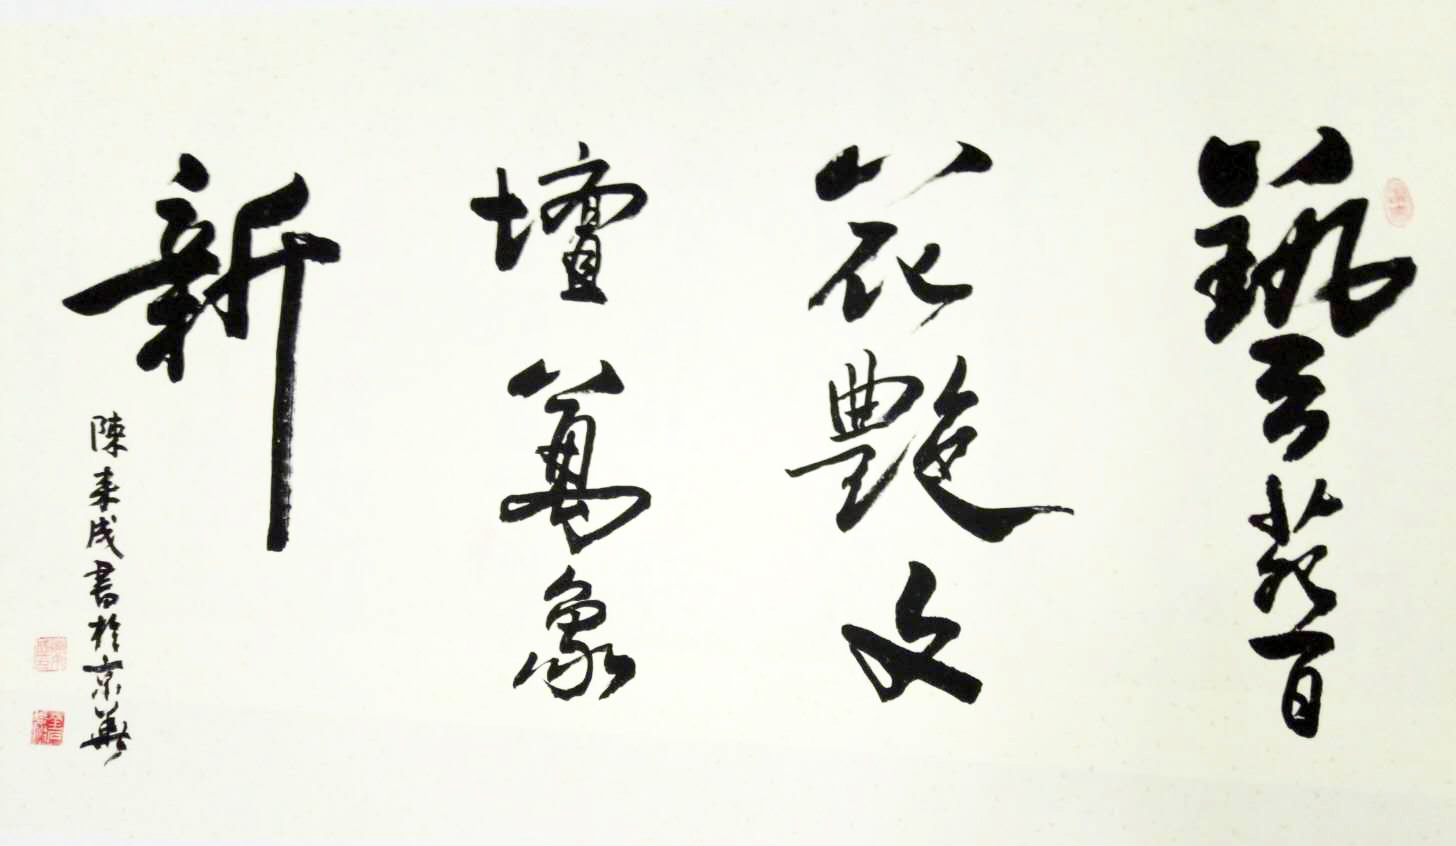 藝苑百
花艷文
壇萬象
新
陳來成書於京華